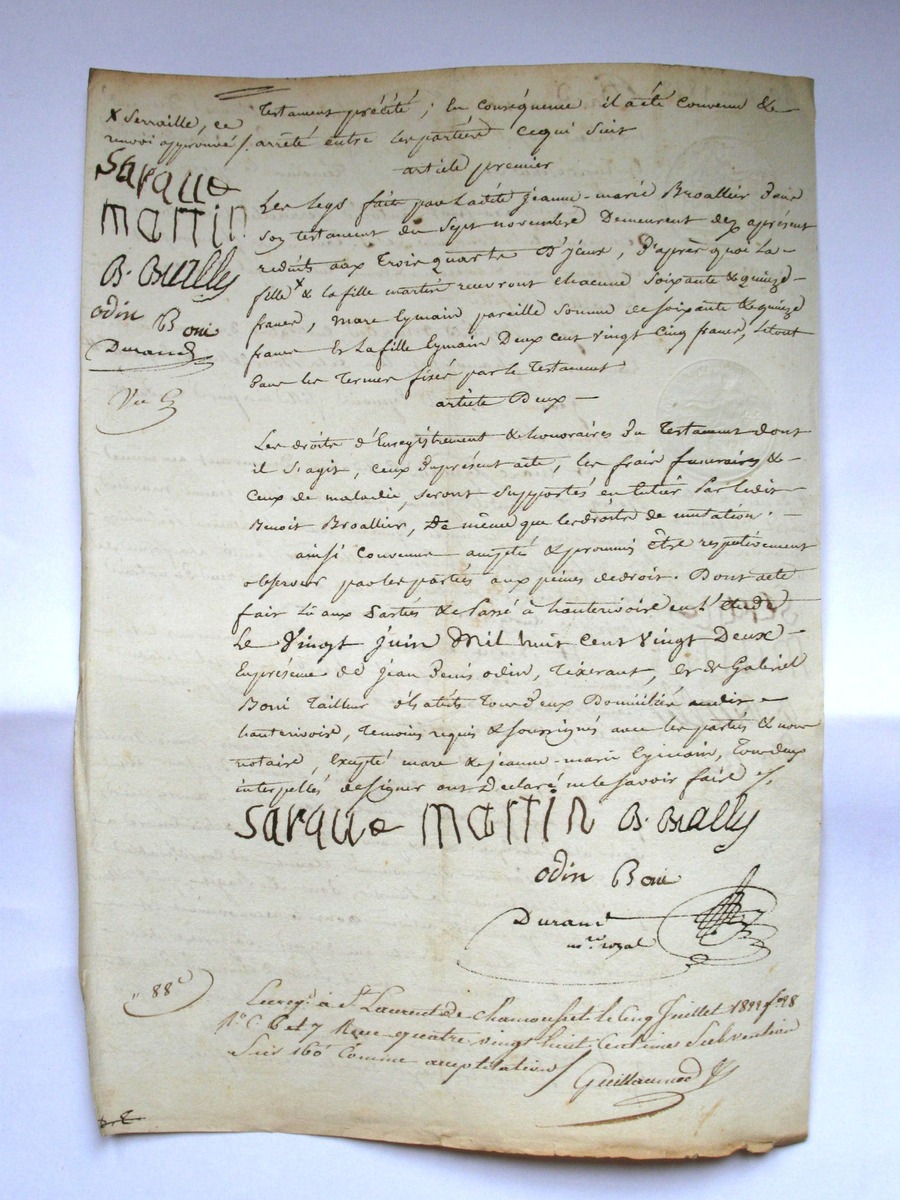 x Serraille, ce
renvoi approuvé
Sarque
martin
B. Bually
odin Boui
Durand
Testament précité ; En conséquence il a été convenu &
arrêté entre les parties ce qui suit
article premier
Les legs fait par ladite jeanne-marie Broallier dans
son testament du sept novembre Demeurent dez aprésent
reduits aux trois quarts D'yeux, D'après quoi La
fille x & la fille martin recevront chacune soixante & quinze
francs, marc Eymain pareille somme de soixante & quinze
francs & La fille Eymain Deux cent vingt cinq francs, Letout
dans les Termes fixés par le Testament
article Deux
Les droits d'Enregistrement & honoraires du Testament dont
il s'agit, ceux duprésent acte, les frais funeraires &
ceux de maladie, seront supportés en entier Par ledit
Benoit Broallier, De même que les droits de mutation.
ainsi convenu accepté & promis être respectivement
observer par les parties aux peines de droit. Dont acte
fait lu aux Parties & Passé à hauterivoire en l'étude
Le Vingt Juin Mil huit cent vingt Deux
Enprésence de jean Denis odin, Tixerant, & de Gabriel
Boui Tailleur Tous Deux Domiciliés audit
hauterivoire, Temoins requis & soussignés avec les parties & nous
notaire, Excepté marc & jeanne-marie Eymain, Tous deux
interpellés de signer ont Declaré ne le savoir faire
Sarque martin B. Bually
odin Boui
Durand
n.re royal
88 c
Enreg. à St Laurent de Chamousset le cinq Juillet 1822 f.o 98
r.o C. 6 et 7 Reçu quatre vingt huit Centimes Subvention
Comme acceptation
Guillaumod